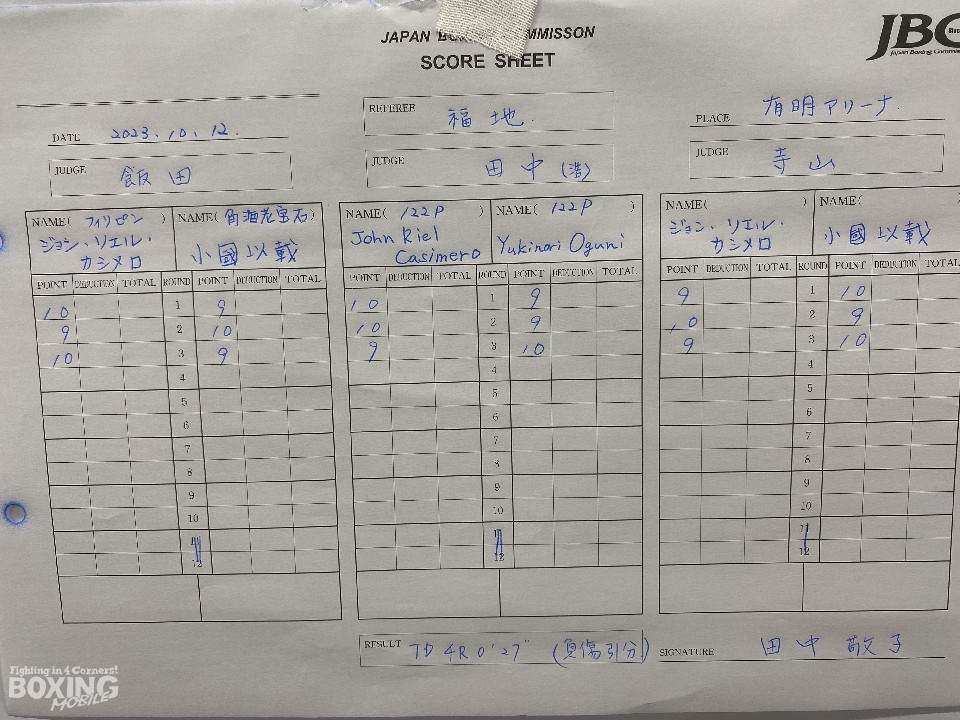 JAPAN BOXING COMMISSON
SCORE SHEET
JBC
Japan Boxing Commission
DATE 2023.10.12.
REFEREE 福地
PLACE 有明アリーナ
JUDGE 飯田
JUDGE 田中(浩)
JUDGE 寺山
NAME( フィリピン ) NAME( 角海老宝石)
ジョン・リエル・カシメロ 小國以載
POINT DEDUCTION TOTAL ROUND POINT DEDUCTION TOTAL
10 1 9
9 2 10
10 3 9
4
5
6
7
8
9
10
11
12
NAME( 122P ) NAME( 122P )
John Riel Casimero Yukinori Oguni
POINT DEDUCTION TOTAL ROUND POINT DEDUCTION TOTAL
10 1 9
10 2 9
9 3 10
4
5
6
7
8
9
10
11
12
NAME( ) NAME( )
ジョン・リエル・カシメロ 小國以載
POINT DEDUCTION TOTAL ROUND POINT DEDUCTION TOTAL
9 1 10
10 2 9
9 3 10
4
5
6
7
8
9
10
11
12
RESULT TD 4R 0'27" (負傷引分)
SIGNATURE 田中敬子
Fighting in 4 Corners!
BOXING
MOBILE